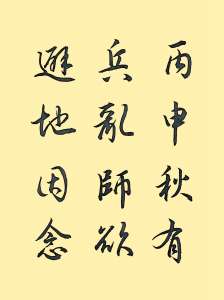 丙申秋有
兵亂師欲
避地因念